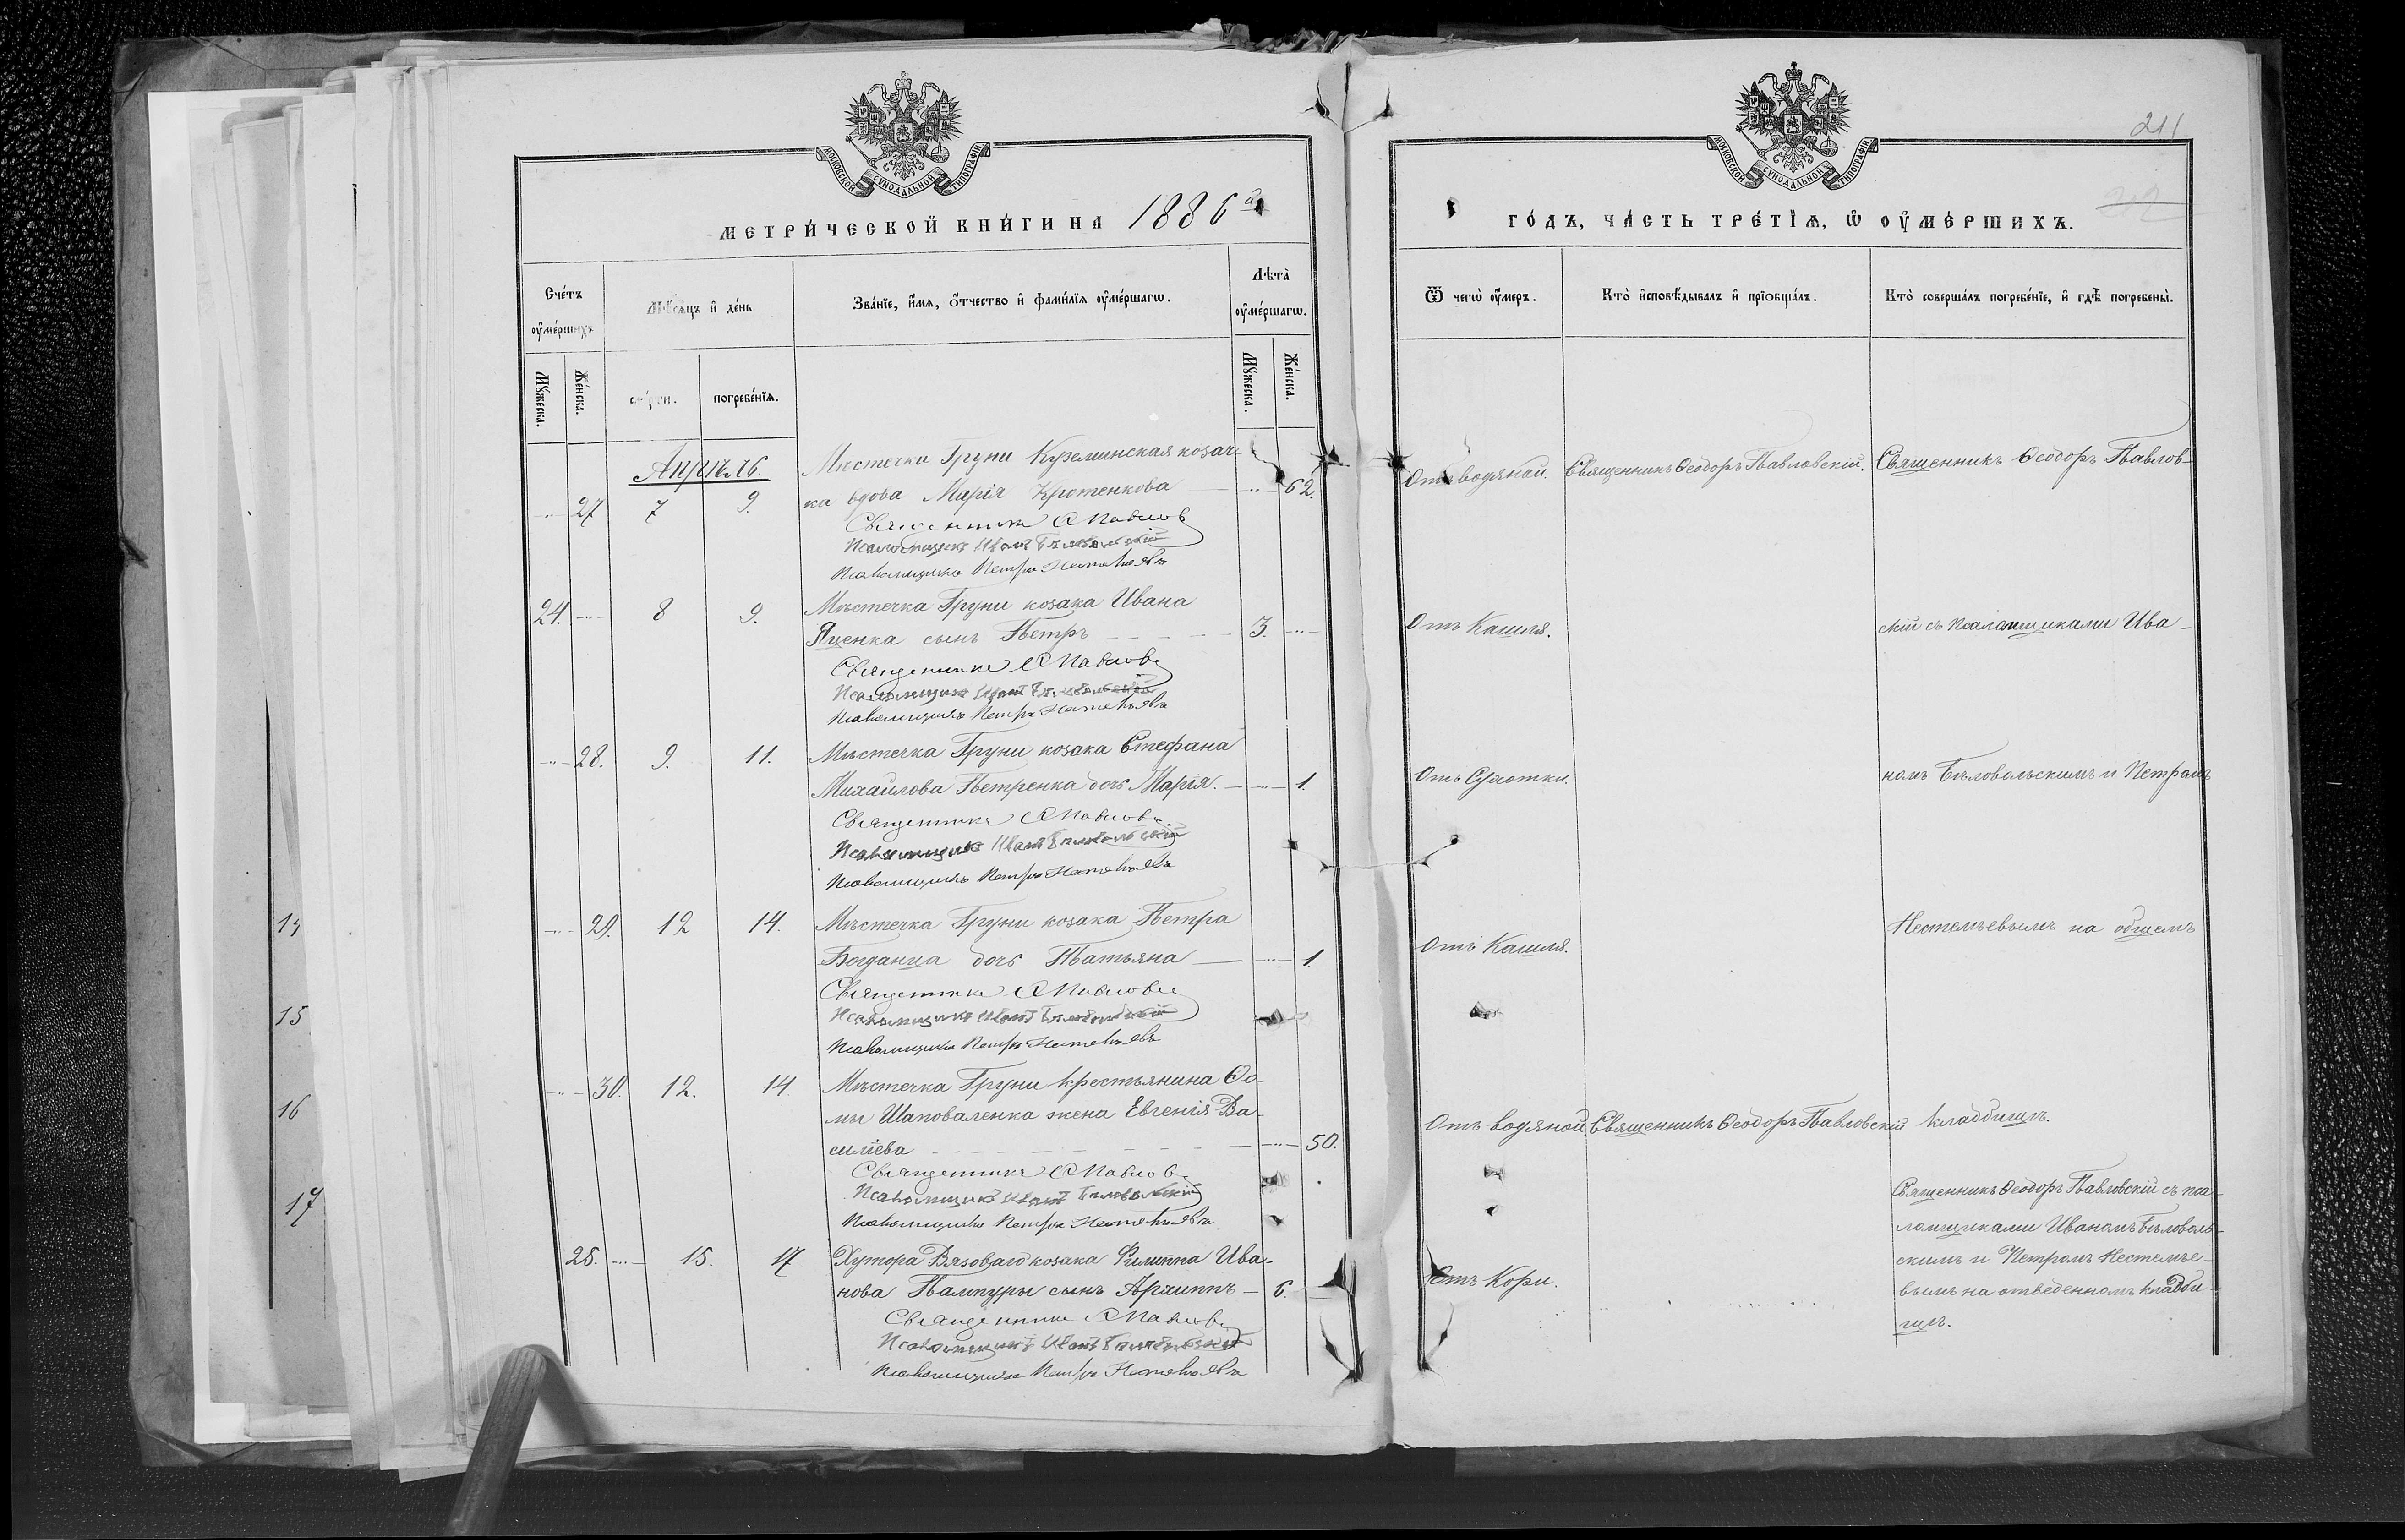 МОСКОВСКОЙ СѴНОДАЛЬНОЙ ТИПОГРАФІИ
МЕТРИ́ЧЕСКОЙ КНИ́ГИ НА 1886 й
Сче́тъ ᲂу҆ме́ршихъ
Мѣ́сѧцъ и҆ де́нь
Зва́нїе, и҆́мѧ, ѻ҆́тчество и҆ фами́лїѧ ᲂу҆ме́ршагѡ.
Лѣ́та ᲂу҆ме́ршагѡ.
Мꙋ́жеска.
Же́нска.
сме́рти.
погребе́нїѧ.
Мꙋ́жеска.
Же́нска.
Апрѣль
Мѣстечка Груни Куземинская козач-
27 7 9. ка вдова Марія Кротенкова 62.
Священникъ Ѳ Павлов
Псаломщикъ Иванъ Бѣловольскій
Псаломщикъ Петръ Нестеньевъ
24. 8 9. Мѣстечка Груни козака Ивана
Яценка сынъ Петръ 3.
Священникъ Ѳ Павлов
Псаломщикъ Иванъ Бѣловольскій
Псаломщикъ Петръ Нестеньевъ
28. 9. 11. Мѣстечка Груни козака Стефана
Михайлова Петренка дочь Марія. 1.
Священникъ Ѳ Павлов
Псаломщикъ Иванъ Бѣловольскій
Псаломщикъ Петръ Нестеньевъ
29. 12 14. Мѣстечка Груни козака Петра
Богданца дочь Татьяна 1.
Священникъ Ѳ Павлов
Псаломщикъ Иванъ Бѣловольскій
Псаломщикъ Петръ Нестеньевъ
30. 12. 14 Мѣстечка Груни крестьянина Ѳо-
мы Шаповаленка жена Евгенія Ва-
силіева 50.
Священникъ Ѳ Павлов
Псаломщикъ Иванъ Бѣловольскій
Псаломщикъ Петръ Нестеньевъ
25. 15. 17 Хутора Вязоваго козака Филиппа Ива-
нова Пампуры сынъ Архиппъ 6.
Священникъ Ѳ Павлов
Псаломщикъ Иванъ Бѣловольскій
Псаломщикъ Петръ Нестеньевъ
14
15
16
17
211
МОСКОВСКОЙ СѴНОДАЛЬНОЙ ТИПОГРАФІИ
ГО́ДЪ, ЧА́СТЬ ТРЕ́ТЇѦ, Ѡ҆ ОУ҆МЕ́РШИХЪ.
Ѿ чегѡ̀ ᲂу҆́меръ.
Кто̀ и҆сповѣ́дывалъ и҆ прїѡбща́лъ.
Кто̀ соверша́лъ погребе́нїе, и҆ гдѣ̀ погребены̀.
Отъ водяной. Священникъ Ѳеодоръ Павловскій. Священникъ Ѳеодоръ Павлов-
Отъ Кашля. скій съ псаломщиками Ива-
Отъ Сухотки. номъ Бѣловольскимъ и Петромъ
Отъ Кашля. Нестеньевымъ на общемъ
Отъ водяной. Священникъ Ѳеодоръ Павловскій кладбищѣ.
Отъ Кори.
Священникъ Ѳеодоръ Павловскій съ пса-
ломщиками Иваномъ Бѣловоль-
скимъ и Петромъ Нестенье-
вымъ на отведенномъ кладби-
щѣ.